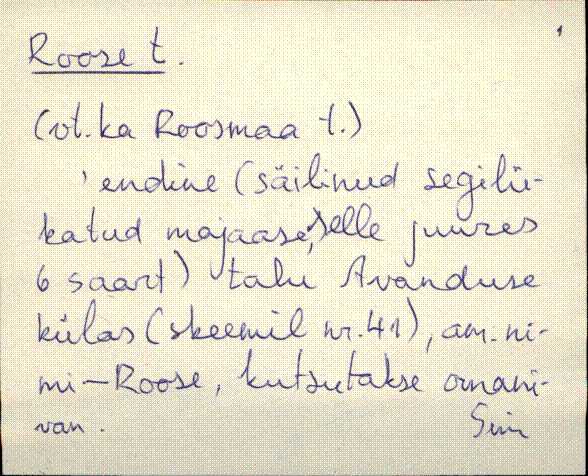 Roose t.
(vt. ka Roosmaa t.)
' endine (säilinud segilü-
katud majaase, selle juures
6 saart) talu Avanduse
külas (skeemil nr. 41), am. ni-
mi - Roose, kutsutakse
van.